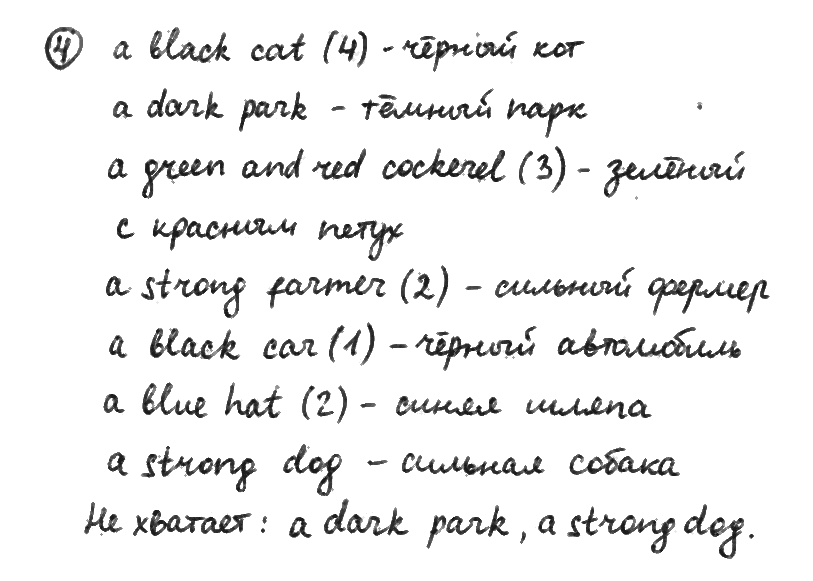 ④ a black cat (4) - чёрный кот
a dark park - тёмный парк
a green and red cockerel (3) - зелёный
с красным петух
a strong farmer (2) - сильный фермер
a black car (1) - чёрный автомобиль
a blue hat (2) - синяя шляпа
a strong dog - сильная собака
Не хватает: a dark park, a strong dog.